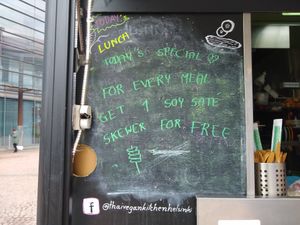 TODAY'S
LUNCH
TODAY'S SPECIAL ♡
FOR EVERY MEAL
GET 1 SOY SATÉ
SKEWER FOR FREE
f @thaivegankitchenhelsinki